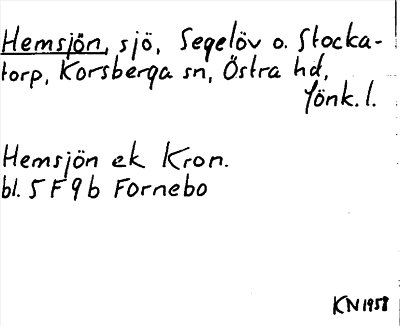 Hemsjön, sjö, Segelöv o. Stocka-
torp, Korsberga sn, Östra hd,
Jönk. l.
Hemsjön ek Kron.
bl. 5 F 9 b Fornebo
KN 1958